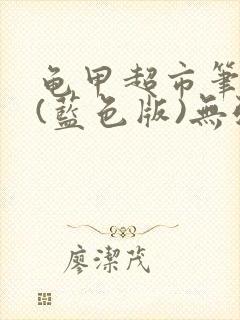 龟甲超市筆
(藍色版)無
廖潔茂